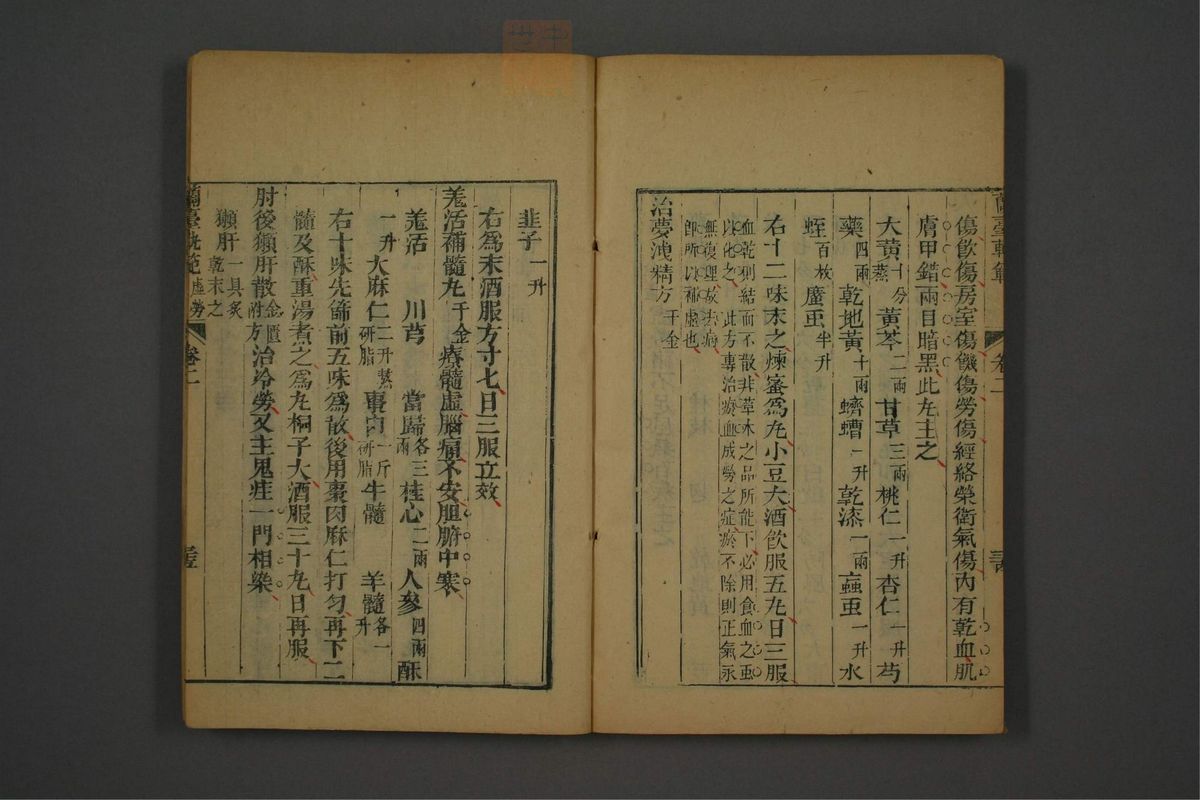 蘭臺軌範 卷二
傷飲傷房室傷饑傷勞傷經絡榮衛氣傷內有乾血肌
膚甲錯兩目暗黑此丸主之
大黃十分蒸 黃芩二兩 甘草三兩 桃仁一升 杏仁一升 芍
藥四兩 乾地黃十兩 蠐螬一升 乾漆一兩 蝱虫一升 水
蛭百枚 䗪虫半升
右十二味末之煉蜜爲丸小豆大酒飲服五丸日三服
血乾則結而不散非草木之品所能下必用食血之虫
以化之 此方專治瘀血成勞之症瘀不除則正氣永
無復理故去病
卽所以補虛也
治夢洩精方千金
韭子一升
右爲末酒服方寸匕日三服立效
羗活補髓丸千金療髓虛腦痛不安胆腑中寒
羗活 川芎 當歸各三兩 桂心二兩 人參四兩 酥
一升 大麻仁二升蒸研脂 棗肉一斤研脂 牛髓 羊髓各一升
右十味先篩前五味爲散後用棗肉麻仁打勻再下二
髓及酥重湯煮之爲丸桐子大酒服三十丸日再服
肘後獺肝散金匱附方治冷勞又主鬼疰一門相染
獺肝一具炙
乾末之
蘭臺軌範 虛勞 卷二